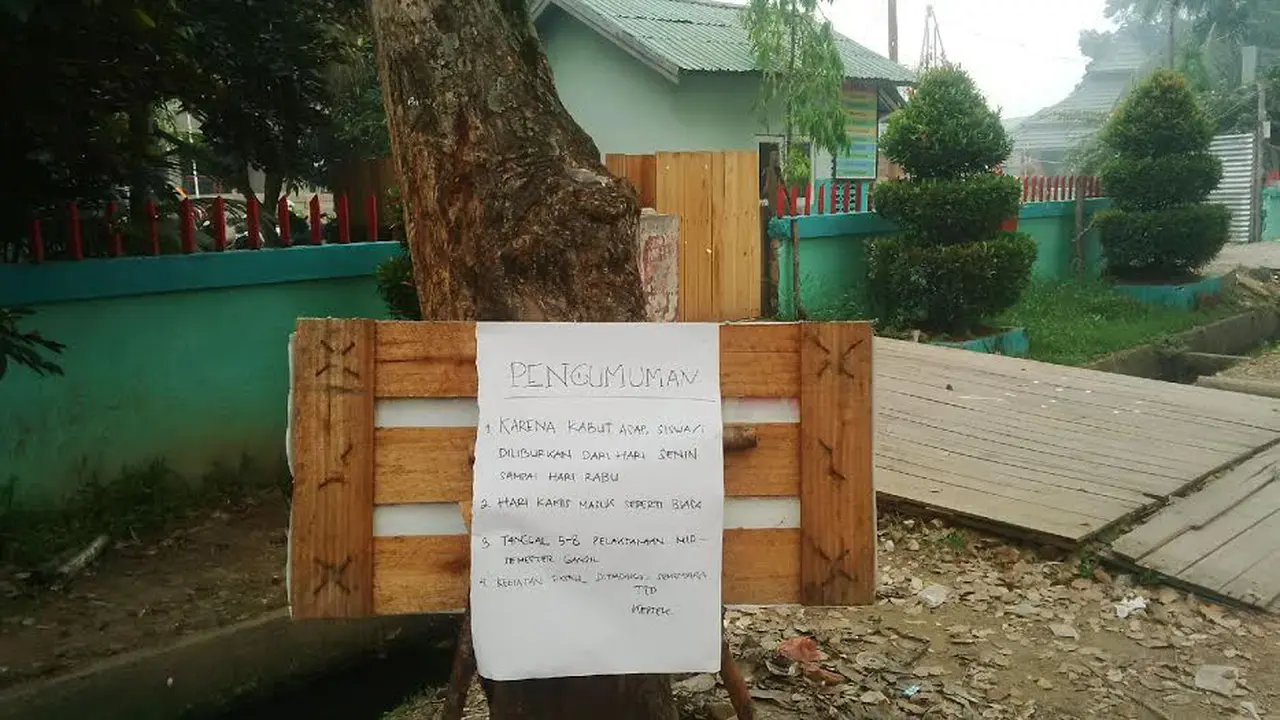 PENGUMUMAN
1. KARENA KABUT ASAP, SISWA/I
DILIBURKAN DARI HARI SENIN
SAMPAI HARI RABU
2. HARI KAMIS MASUK SEPERTI BIASA
3. TANGGAL 5-8 PELAKSANAAN MID-
SEMESTER GANJIL
4. KEGIATAN DITIADAKAN SEMENTARA
TTD
KEPSEK